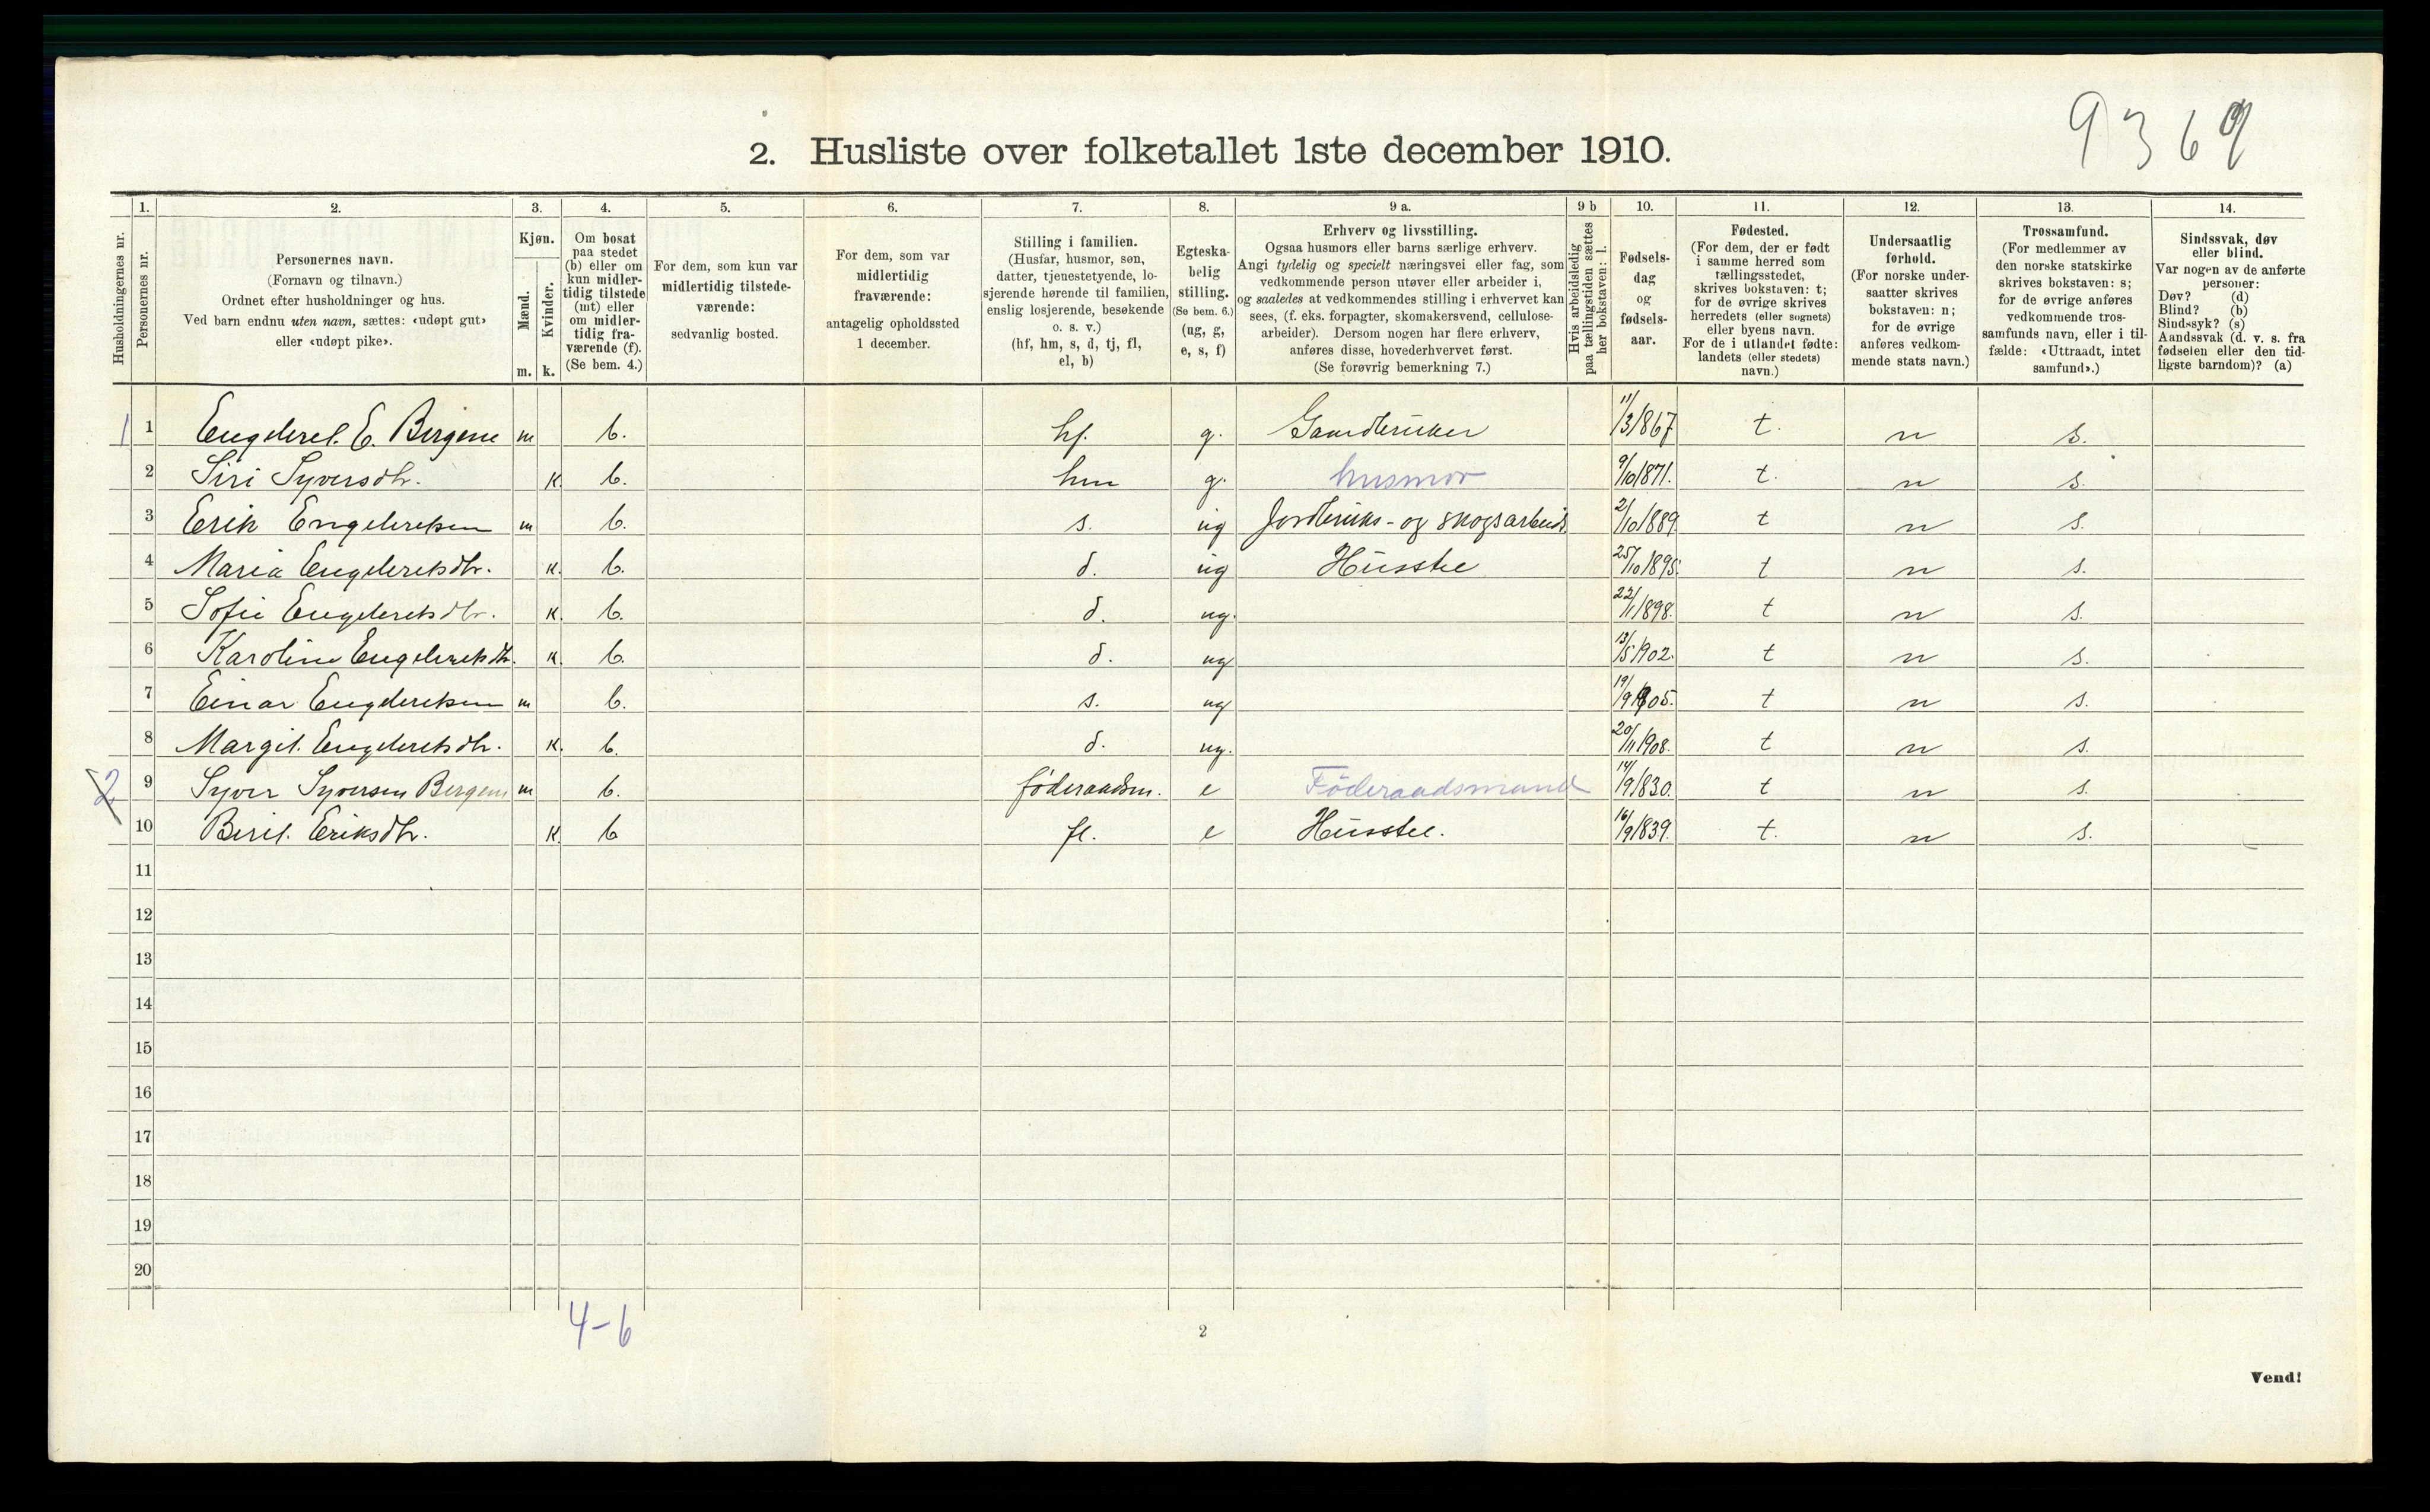 9369
2. Husliste over folketallet 1ste december 1910.
1. 2. 3. 4. 5. 6. 7. 8. 9 a. 9 b 10. 11. 12. 13. 14.
Husholdningernes nr.
Personernes nr.
Personernes navn.
(Fornavn og tilnavn.)
Ordnet efter husholdninger og hus.
Ved barn endnu uten navn, sættes: «udøpt gut»
eller «udøpt pike».
Kjøn.
Mænd.
Kvinder.
m. k.
Om bosat
paa stedet
(b) eller om
kun midler-
tidig tilstede
(mt) eller
om midler-
tidig fra-
værende (f).
(Se bem. 4.)
For dem, som kun var
midlertidig tilstede-
værende:
sedvanlig bosted.
For dem, som var
midlertidig
fraværende:
antagelig opholdssted
1 december.
Stilling i familien.
(Husfar, husmor, søn,
datter, tjenestetyende, lo-
sjerende hørende til familien,
enslig losjerende, besøkende
o. s. v.)
(hf, hm, s, d, tj, fl,
el, b)
Egteska-
belig
stilling.
(Se bem. 6.)
(ug, g,
e, s, f)
Erhverv og livsstilling.
Ogsaa husmors eller barns særlige erhverv.
Angi tydelig og specielt næringsvei eller fag, som
vedkommende person utøver eller arbeider i,
og saaledes at vedkommendes stilling i erhvervet kan
sees, (f. eks. forpagter, skomakersvend, cellulose-
arbeider). Dersom nogen har flere erhverv,
anføres disse, hovederhvervet først.
(Se forøvrig bemerkning 7.)
Hvis arbeidsledig
paa tællingstiden sættes
her bokstaven: l.
Fødsels-
dag
og
fødsels-
aar.
Fødested.
(For dem, der er født
i samme herred som
tællingsstedet,
skrives bokstaven: t;
for de øvrige skrives
herredets (eller sognets)
eller byens navn.
For de i utlandet fødte:
landets (eller stedets)
navn.)
Undersaatlig
forhold.
(For norske under-
saatter skrives
bokstaven: n;
for de øvrige
anføres vedkom-
mende stats navn.)
Trossamfund.
(For medlemmer av
den norske statskirke
skrives bokstaven: s;
for de øvrige anføres
vedkommende tros-
samfunds navn, eller i til-
fælde: «Uttraadt, intet
samfund».)
Sindssvak, døv
eller blind.
Var nogen av de anførte
personer:
Døv? (d)
Blind? (b)
Sindssyk? (s)
Aandssvak (d. v. s. fra
fødselen eller den tid-
ligste barndom)? (a)
1 1 Engebret. E. Bergene m b. hf. g. Gaardbruker 11/3/867 t. n s.
2 Siri Syversdtr. k. b. hm g. husmor 9/10/871. t. n s.
3 Erik Engebretsen m b. s. ug Jordbruks- og skogsarbeid. 2/10/889 t n s.
4 Maria Engebretsdtr. k. b. d. ug Husstel 25/10/895. t n s.
5 Sofie Engebretsdtr. k. b. d. ug. 22/1/898. t n s.
6 Karoline Engebretsdtr. k. b. d. ug 13/5/902. t n s.
7 Einar Engebretsen m b. s. ug 19/9/905. t n s.
8 Margit. Engebretsdtr. k. b. d. ug. 20/11/908. t n s.
2 9 Syver Syversen Bergene m b. føderaadsm. e Føderaadsmand 14/9/830. t n s.
10 Berit. Eriksdtr. k. b fl. e Husstel. 16/9/839. t. n s.
11
12
13
14
15
16
17
18
19
20
4-6
2
Vend!